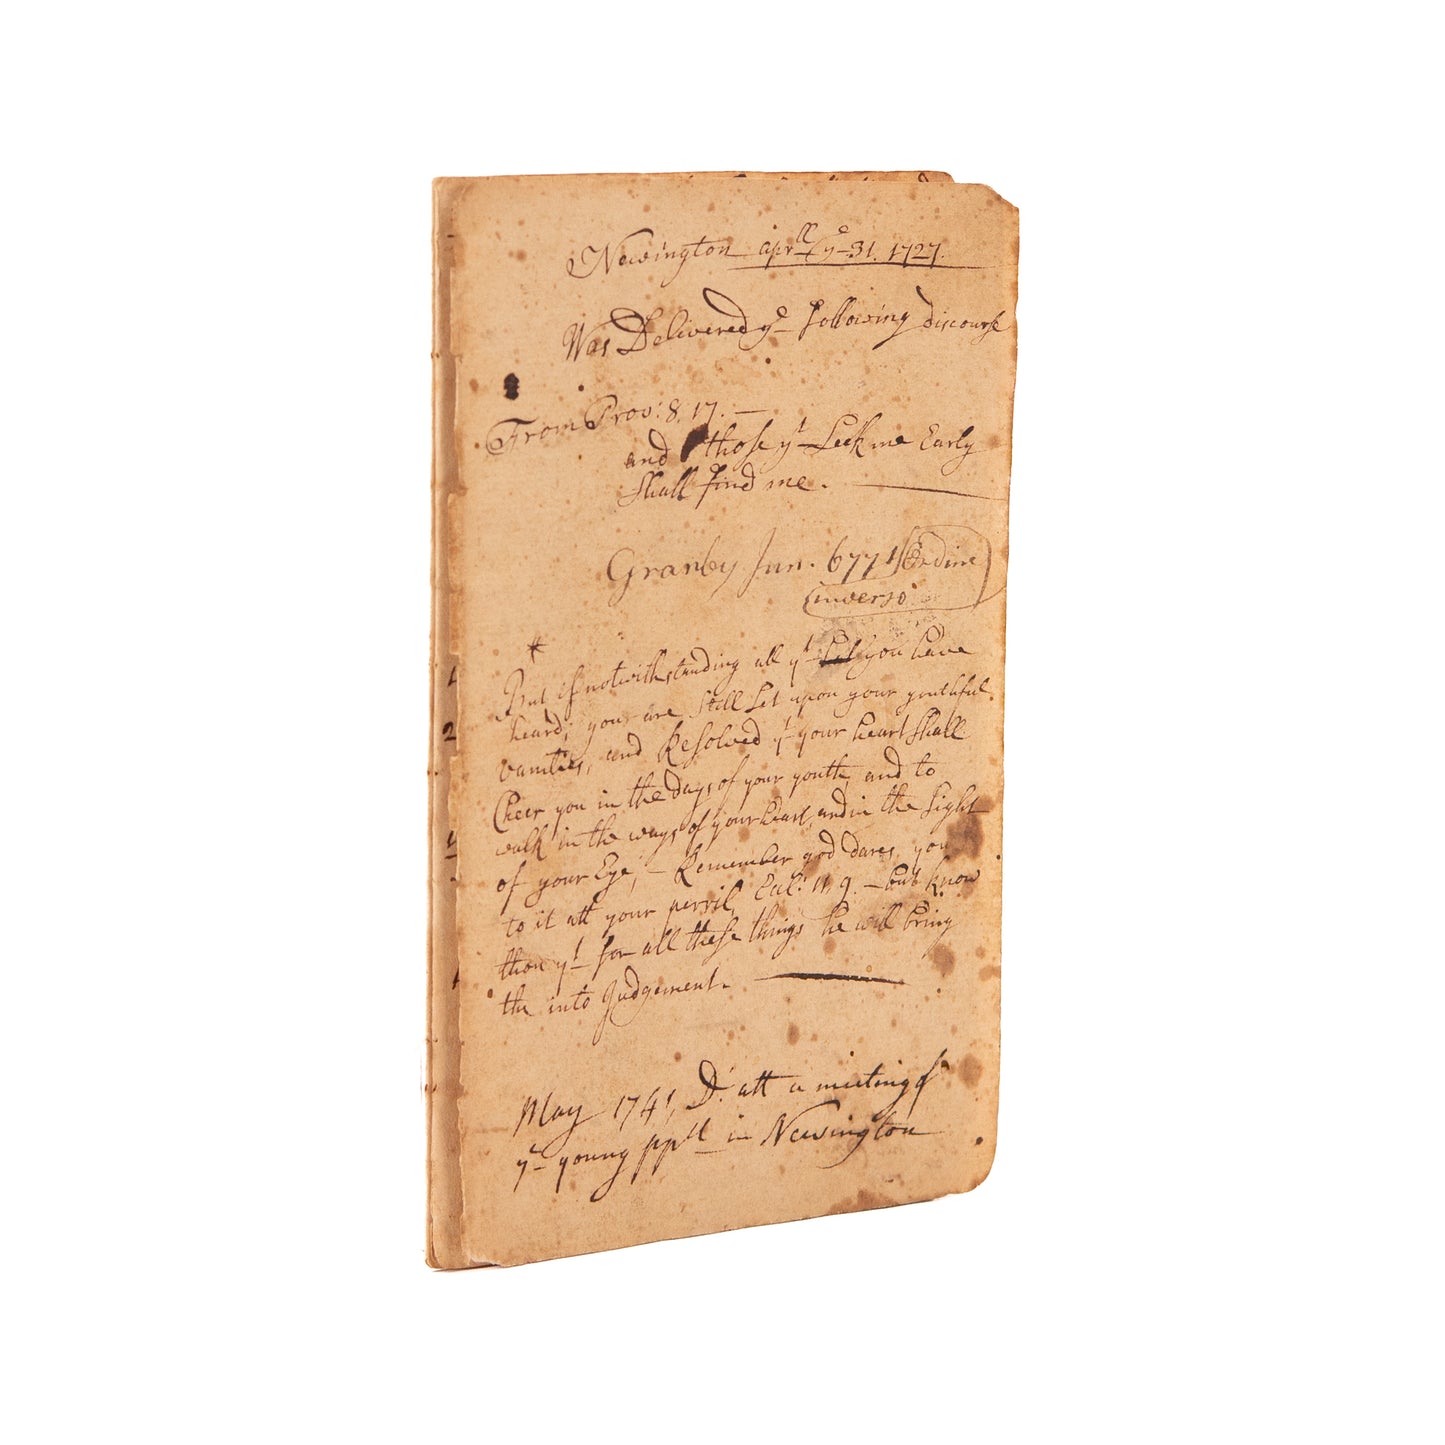 Newington aprll ye 31. 1727.
Was Delivered ye following discourse
From Prov: 8, 17. —
and those yt Seek me Early
Shall find me. —
Granby Jun. 6771 (Ordine
inverso
#
But if notwithstanding all yt you have
heard; your are Still Set upon your youthful
vanities, and Resolved yt your heart Shall
Cheer you in the days of your youth, and to
walk in the ways of your heart, and in the Sight
of your Eye; — Remember god dares you
to it att your perril, Eccl: 11, 9. — but know
thou yt for all these things he will bring
the into Judgement. —
May 1741, D: att a meeting of
ye young ppll in Newington
1
2